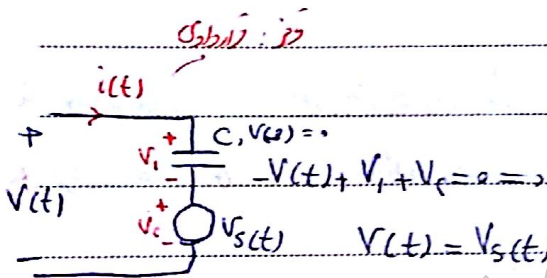 فرض: قراردادی
i(t)
+
+
V₁
-
C, V(0)=0
-V(t) + V₁ + V₂ = 0 ⇒
V(t)
+
V₂
-
V_S(t)
V(t) = V_S(t)